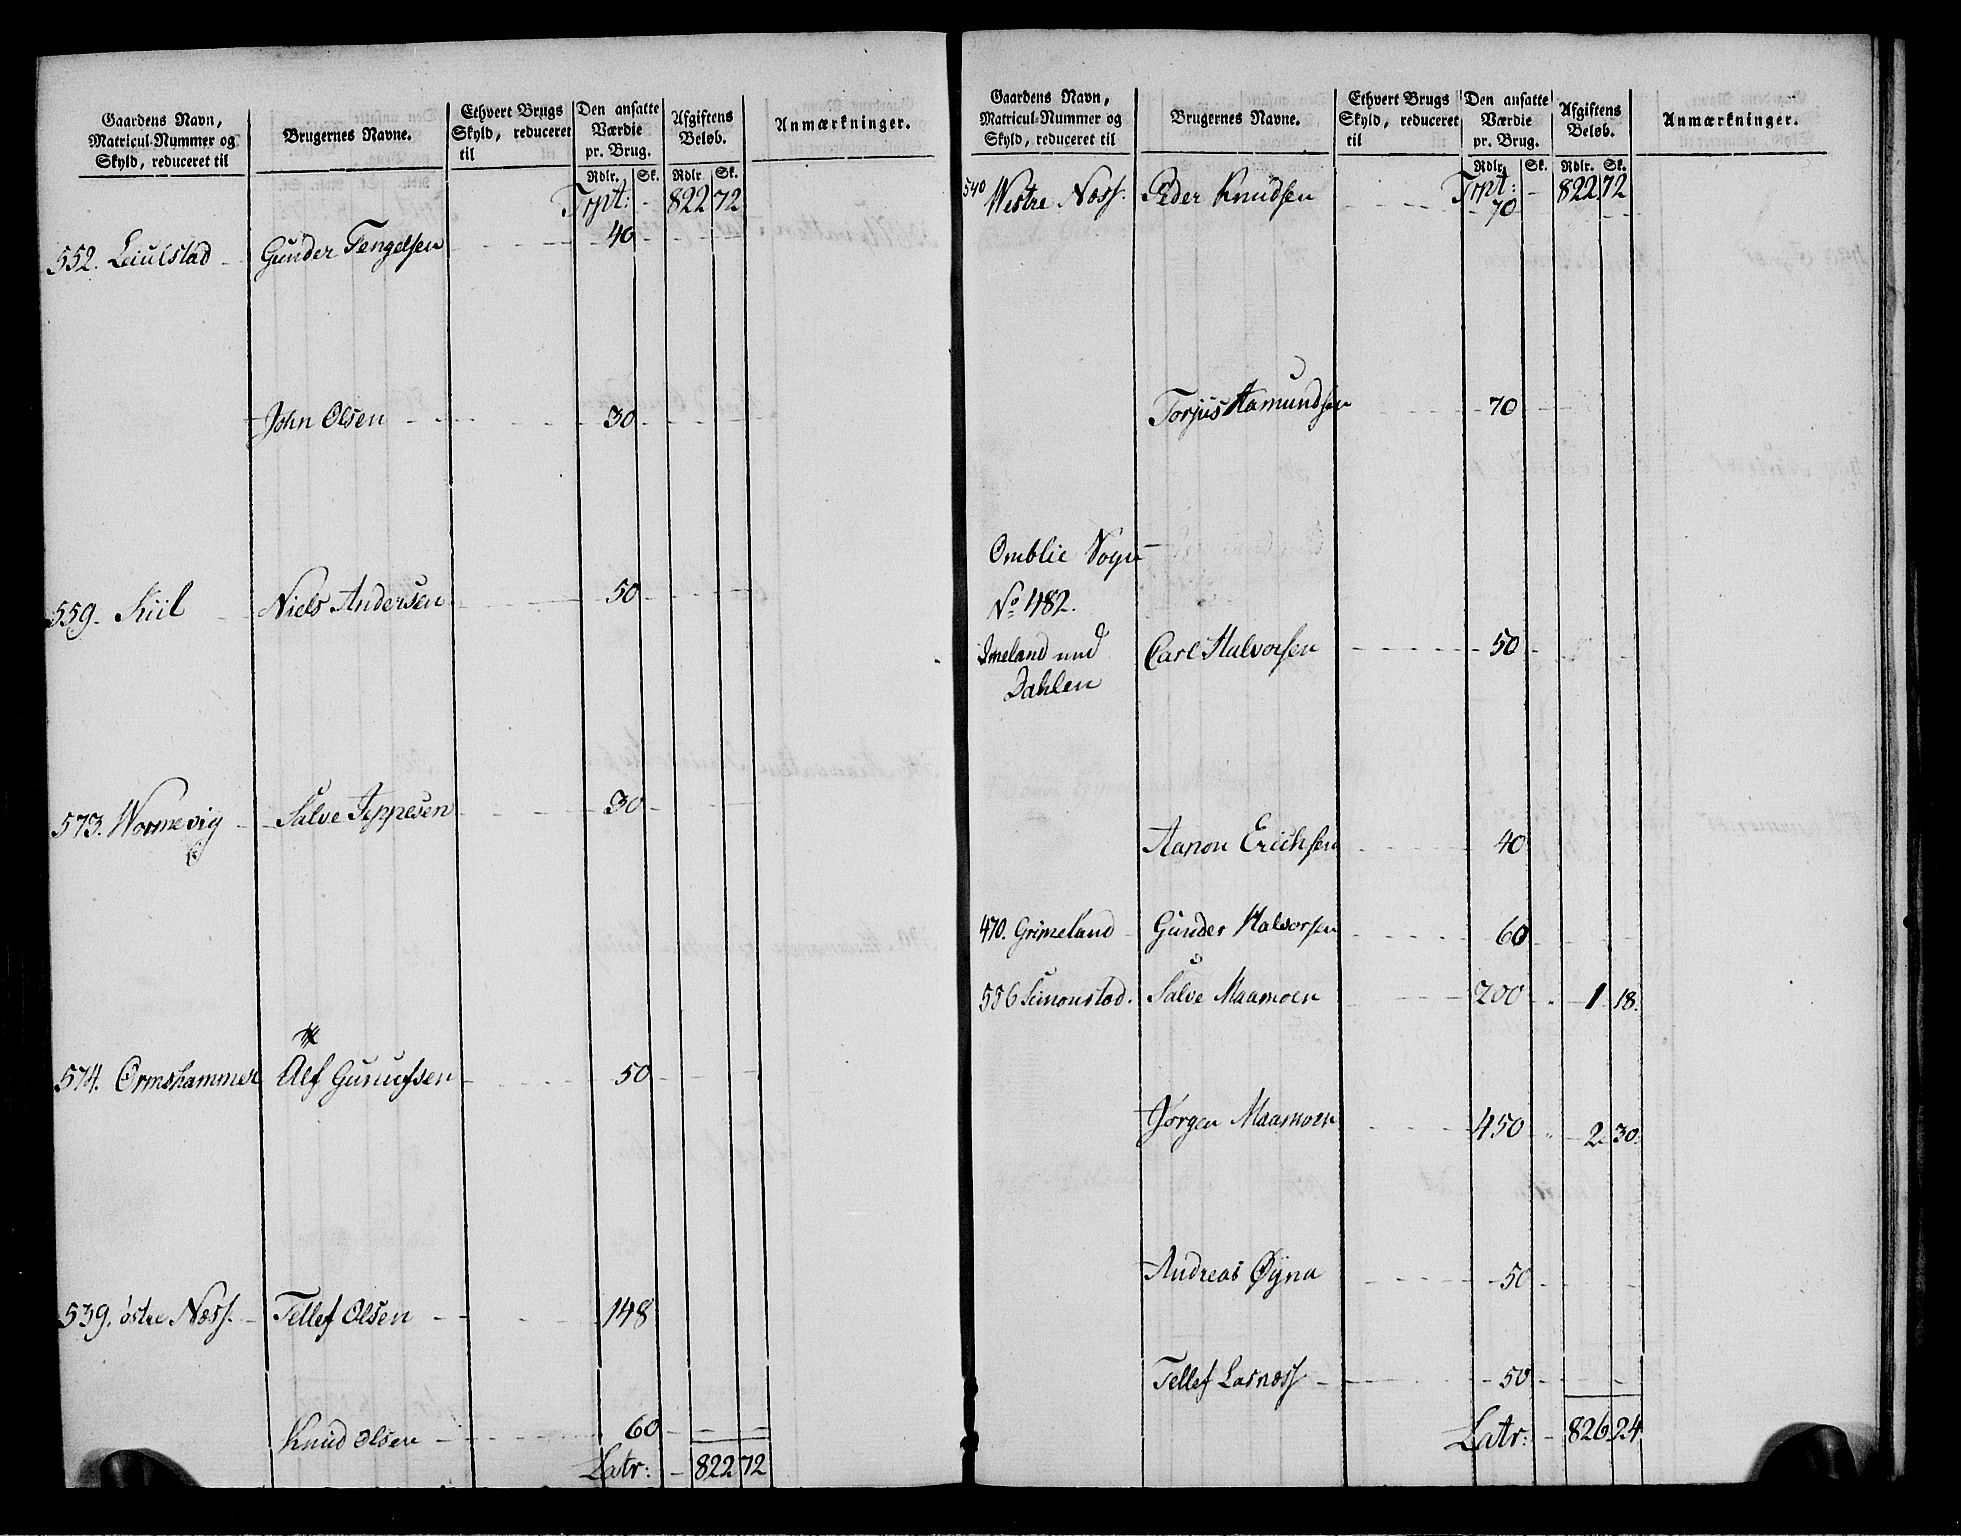 Gaardens Navn, Matricul-Nummer og Skyld, reduceret til | Brugernes Navne. | Ethvert Brugs Skyld, reduceret til | Den ansatte Værdie pr. Brug. | Afgiftens Beløb. | Anmærkninger.
Rdlr. | Sk. | Rdlr. | Sk.
Trpt: - 822 72
552. Leiulstad - Gunder Tengelsen 40
John Olsen 30
559. Kiil - Niels Andersen 50
573. Wormevig - Salve Jeppesen 30
574. Ormshammer Alf Gunufsen 50
539. østre Næss. - Tellef Olsen 148
Knud Olsen 60
Latr: - 822 72
Gaardens Navn, Matricul-Nummer og Skyld, reduceret til | Brugernes Navne. | Ethvert Brugs Skyld, reduceret til | Den ansatte Værdie pr. Brug. | Afgiftens Beløb. | Anmærkninger.
Rdlr. | Sk. | Rdlr. | Sk.
Trpt: - 822 72
540 Westre Næss. Peder Knudsen 70
Torjus Aamundsen 70
Omblie Sogn
No 482.
Imeland und Carl Halvorsen 50
Dahlen
Aanon Erichsen 40
470. Grimeland Gunder Halvorsen 60
556 Simonstad. Salve Maamoen 200 1 18.
Jørgen Maamoen 450 2 30.
Andreas Øyna 50
Tellef Lasnæss 50
Latr: - 826 24